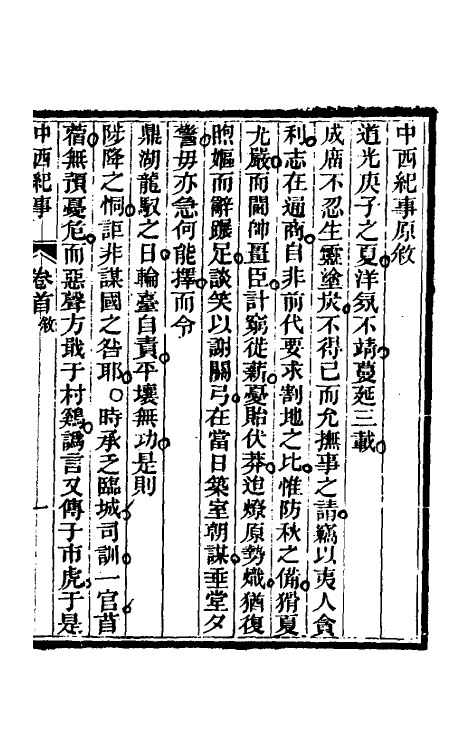 中西紀事原敘
道光庚子之夏洋氛不靖蔓延三載
成廟不忍生靈塗炭不得已而允撫事之請竊以夷人貪
利志在通商自非前代要求割地之比惟防秋之備猾夏
尤嚴而閫帥畺臣計窮徙薪憂貽伏莽迨燎原勢熾猶復
煦嫗而辭躧足談笑以謝關弓在當日築室朝謀垂堂夕
警毋亦急何能擇而今
鼎湖龍馭之日輪臺自責平壤無功是則
陟降之恫詎非謀國之咎耶○時承乏臨城司訓一官苜
蓿無預憂危而惡聲方戢于村鷄譌言又傳于市虎于是
中西紀事 卷首敘 一